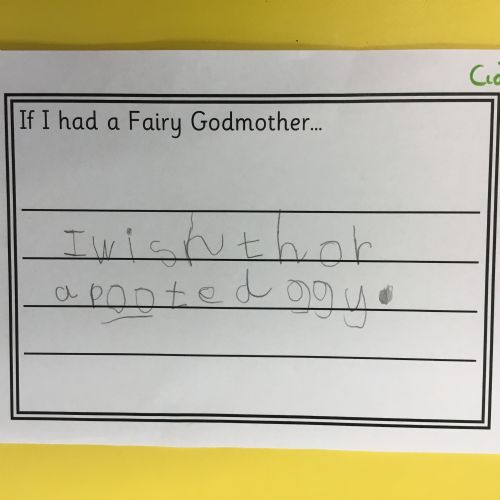 If I had a Fairy Godmother...
I wish thor
a pooted oggy.